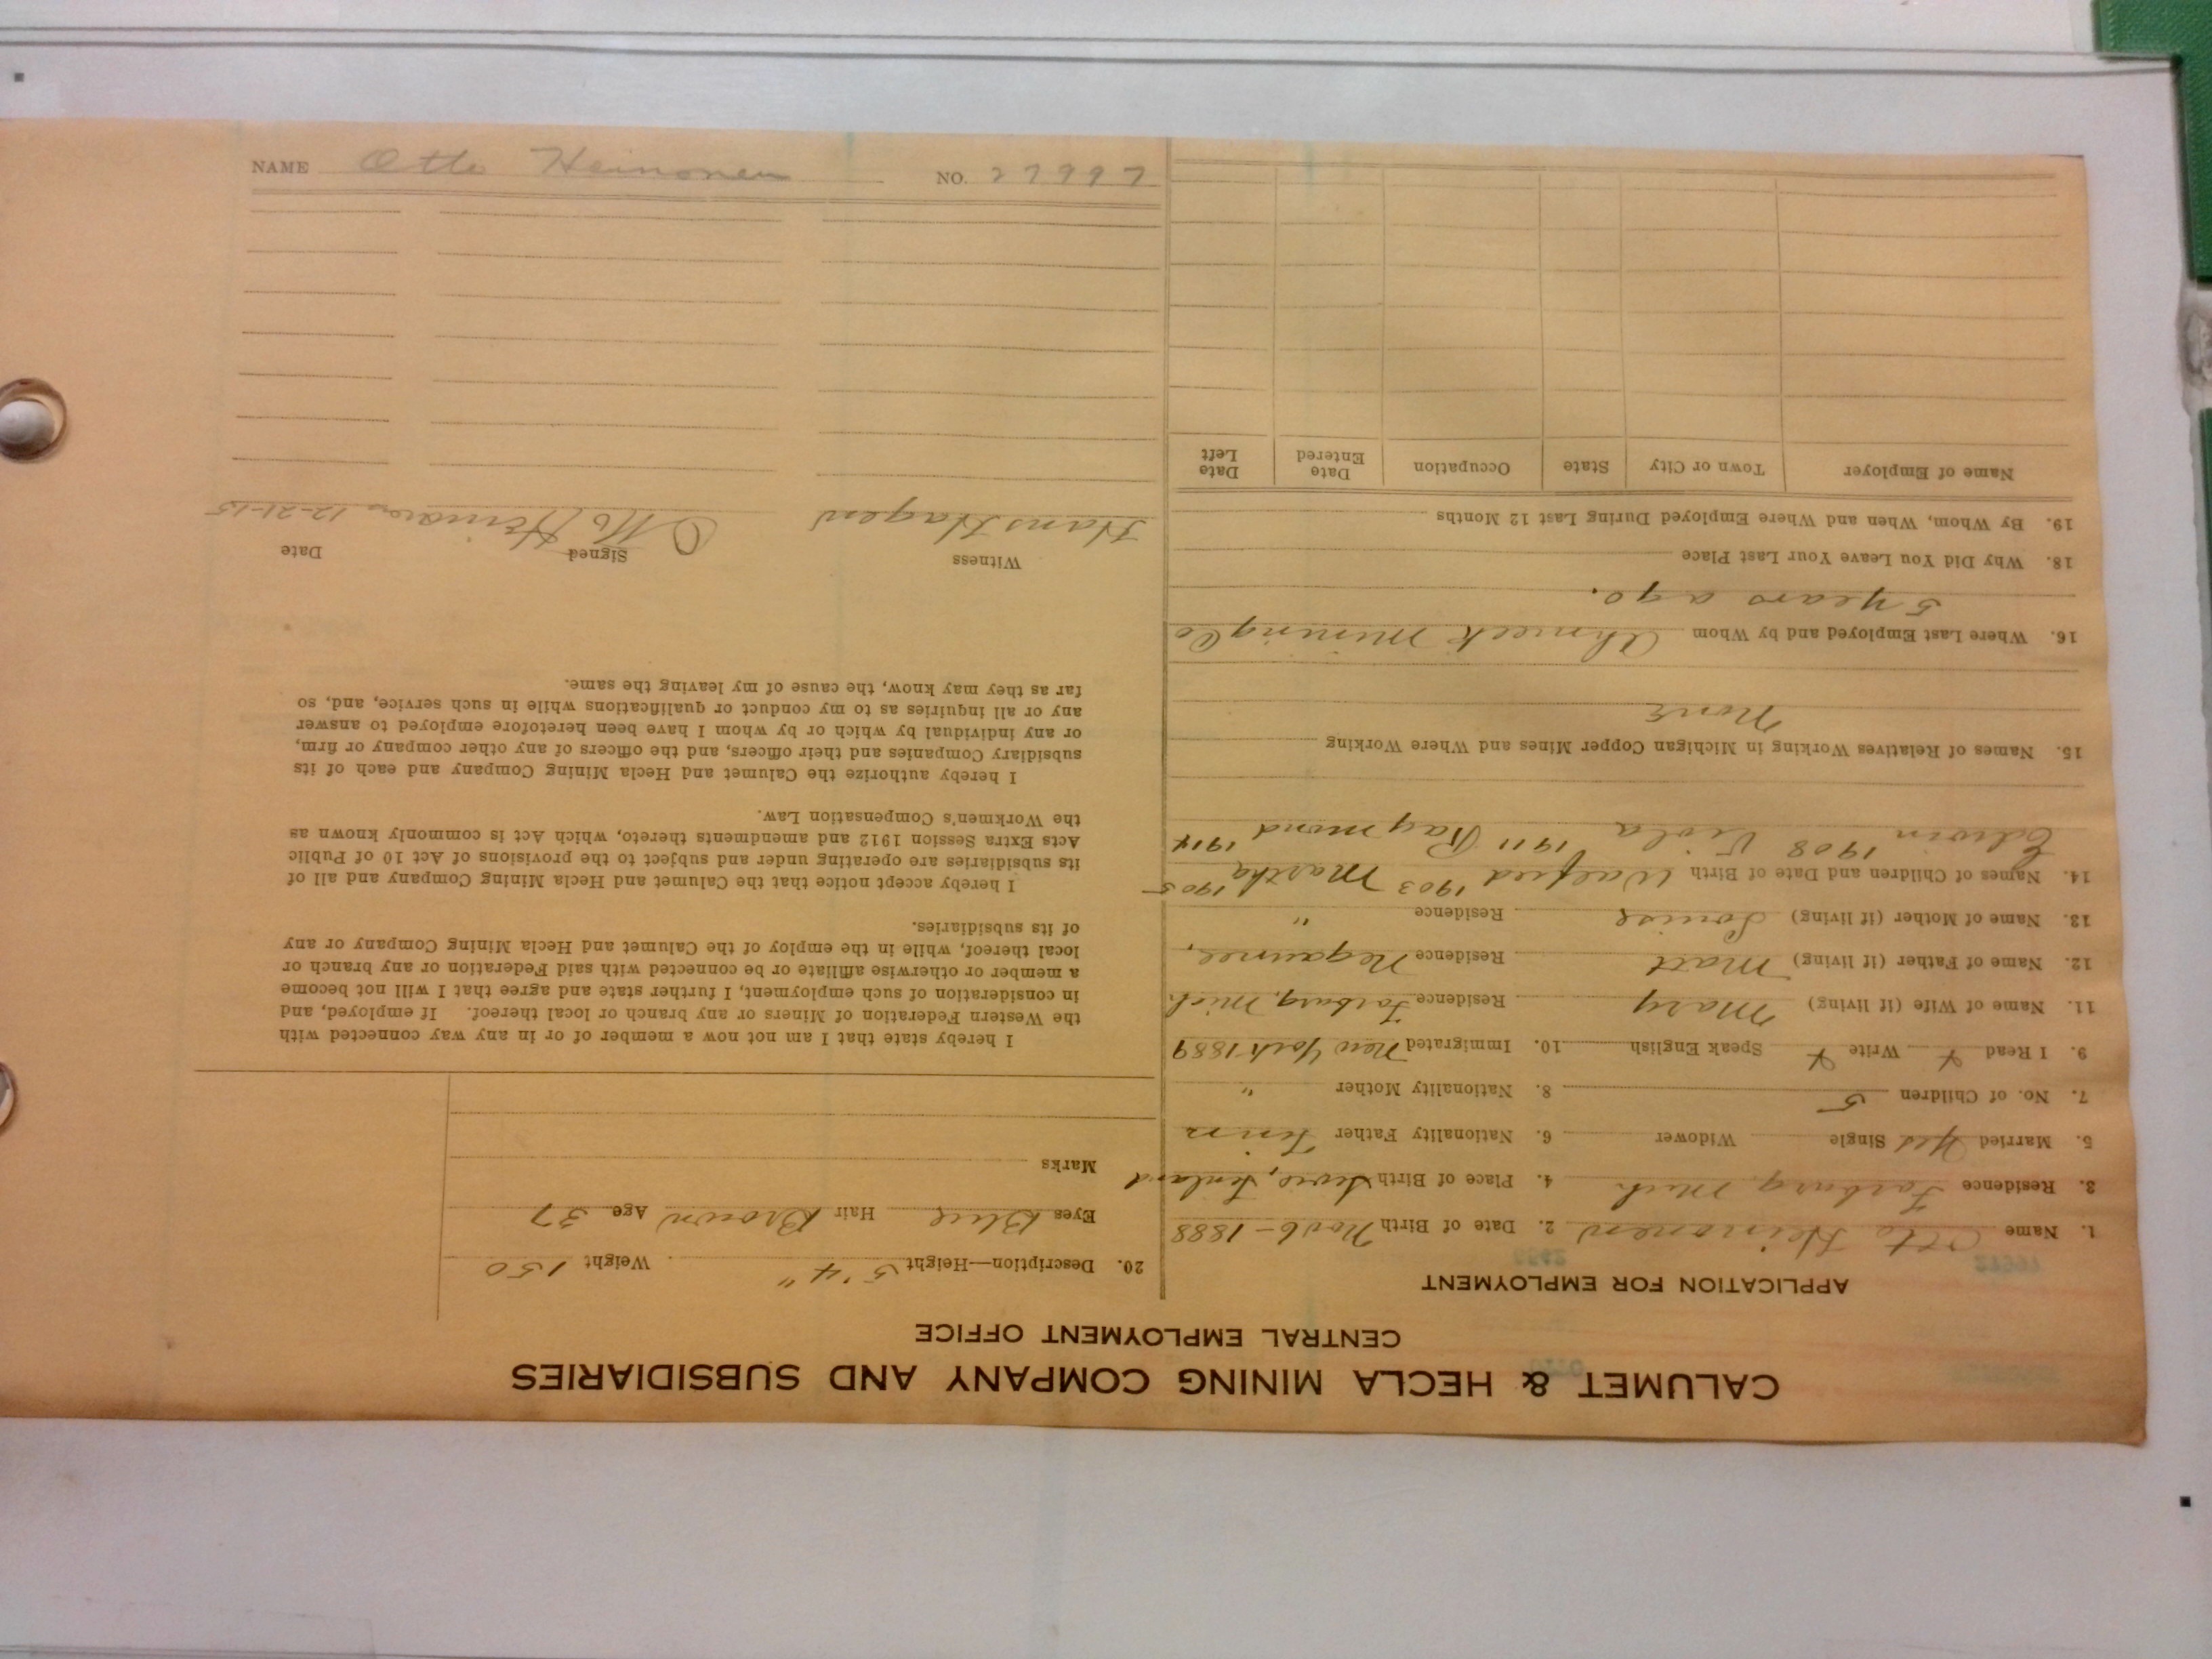 CALUMET & HECLA MINING COMPANY AND SUBSIDIARIES
CENTRAL EMPLOYMENT OFFICE
APPLICATION FOR EMPLOYMENT
1. Name Otto Heinonen 2. Date of Birth Nov 6 - 1888
3. Residence Mich. 4. Place of Birth Finland
5. Married Yes Single Widower 6. Nationality Father Finn
7. No. of Children 5 8. Nationality Mother "
9. I Read X Write X Speak English 10. Immigrated New York 1889
11. Name of Wife (if living) Mary Residence Mich
12. Name of Father (if living) Matt Residence Negaunee,
13. Name of Mother (if living) Louise Residence "
14. Names of Children and Date of Birth Walfred 1903 Martha 1905
Edwin 1908 Viola 1911 Raymond 1914
15. Names of Relatives Working in Michigan Copper Mines and Where Working
None
16. Where Last Employed and by Whom Ahmeek Mining Co
5 years ago.
18. Why Did You Leave Your Last Place
19. By Whom, When and Where Employed During Last 12 Months
Name of Employer Town or City State Occupation Date Entered Date Left
20. Description—Height 5'4" Weight 150
Eyes Blue Hair Brown Age 37
Marks
I hereby state that I am not now a member of or in any way connected with
the Western Federation of Miners or any branch or local thereof. If employed, and
in consideration of such employment, I further state and agree that I will not become
a member or otherwise affiliate or be connected with said Federation or any branch or
local thereof, while in the employ of the Calumet and Hecla Mining Company or any
of its subsidiaries.
I hereby accept notice that the Calumet and Hecla Mining Company and all of
its subsidiaries are operating under and subject to the provisions of Act 10 of Public
Acts Extra Session 1912 and amendments thereto, which Act is commonly known as
the Workmen's Compensation Law.
I hereby authorize the Calumet and Hecla Mining Company and each of its
subsidiary Companies and their officers, and the officers of any other company or firm,
or any individual by which or by whom I have been heretofore employed to answer
any or all inquiries as to my conduct or qualifications while in such service, and, so
far as they may know, the cause of my leaving the same.
Witness Signed Date
Hans Hagen Otto Heinonen 12-21-15
NAME Otto Heinonen NO. 27997